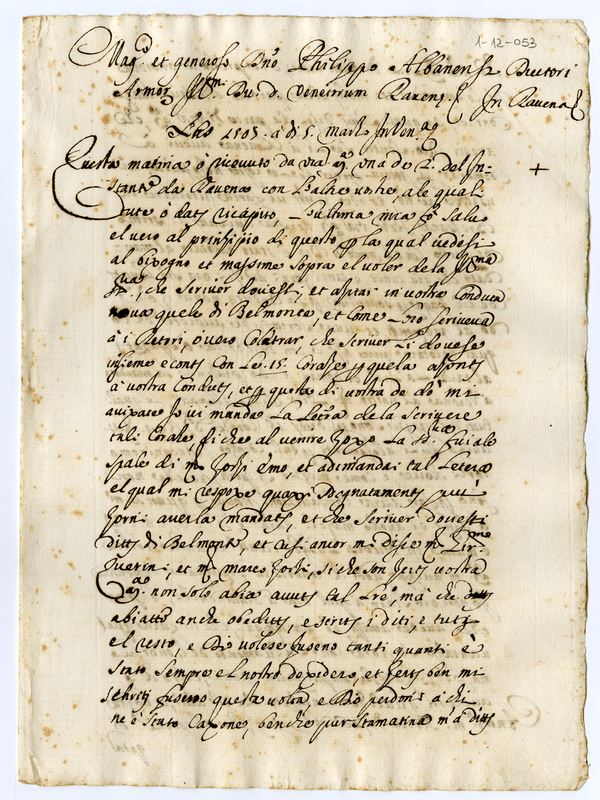 1-12-053
Mag.co et generoso D.no Philippo Albanense Ductori
Armor. Ill.mi Du. d. Venetiarum Ravenę In Ravena
Lhs 1505. a di 5. Marzo In Ven.
Questa matina ò ricevuto da vra una de 2. del In-
stante da Ravena con l'altre vostre, ale qual
tute ò dato ricapito, L'ultima mia fo Salvo
el vero al prinzipio di questo la qual vedesi
al bixogno et massime sopra el voler de la Ill.ma
S.ria, che scriver dovesti, et asptar in vostra Conduta
nova quele di Belmonte, et come Loro scriveva
à i Retori, ò vero Colatrar, che scriver li dovese
insieme e conti con Le. 15. Corase quela asonti
à vostra Conduta, et questa di vostra de dò mi
avixate Io vi manda La Letra de la Scrivere
tali Corase, si che al venire zoxo La S.ria fui ale
spale di m. Zorzi Emo, et adimandai tal Letera
el qual mi respoxe quaxi Degnatamente più
zorni averla mandata, et che Scriver dovesti
ditti di Belmonte, et cusi ancor mi disse m. Hir.mo
Querini, et m. marco Zorzi, si che son zerto vostra
non solo abia avuto tal Lre, ma che
abiatto anche obedito, e scrito i diti, e tutti
el resto, e Dio volese fuseno tanti quanti è
stato Sempre el nostro dexiderio, et zerto ben mi
questa volta, e Dio perdoni à chi
ne è stato Caxone, ben che pur Stamatina m'à ditto